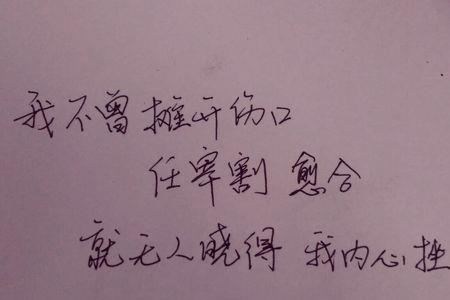 我不曾摊开伤口
任宰割 愈合
就无人晓得 我内心挫